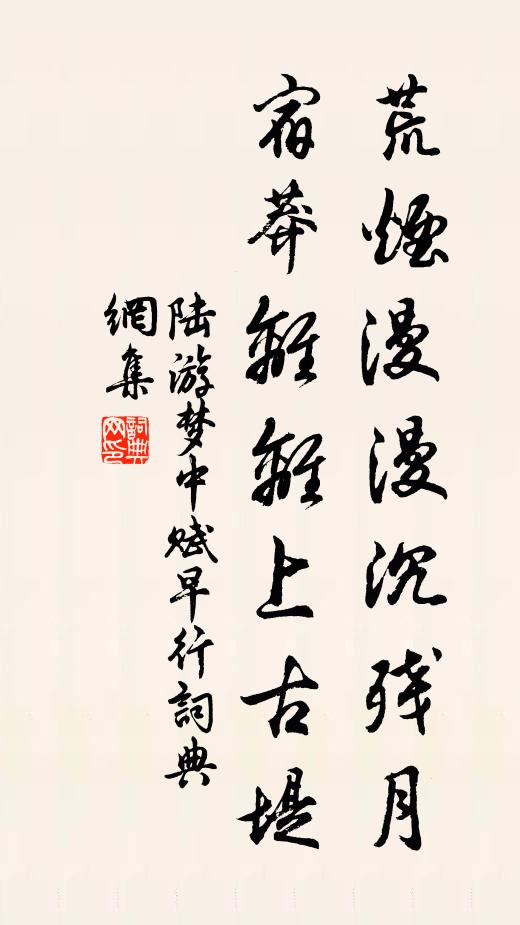 荒煙漫漫沉残月
宿莽離離上古堤
陆游梦中赋早行詞典
網集
詞典
网印